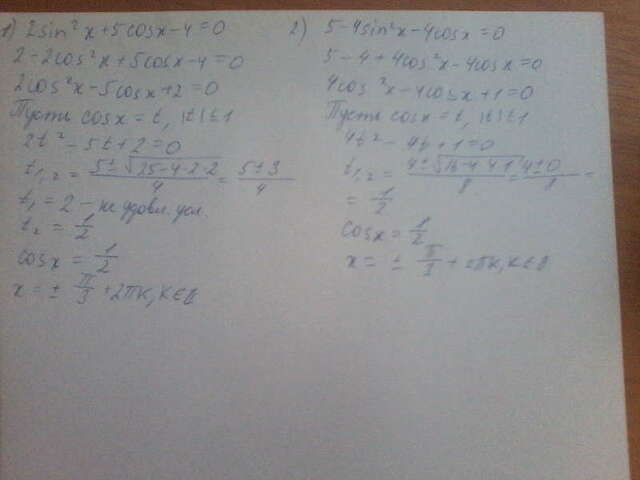 1) 2sin²x+5cosx-4=0
2-2cos²x+5cosx-4=0
2cos²x-5cosx+2=0
Пусть cosx=t, |t|≤1
2t²-5t+2=0
t₁,₂ = (5±√(25-4·2·2))/4 = (5±3)/4
t₁=2 - не удовл. усл.
t₂=1/2
cosx=1/2
x=±π/3+2πk, k∈Z
2) 5-4sin²x-4cosx=0
5-4+4cos²x-4cosx=0
4cos²x-4cosx+1=0
Пусть cosx=t, |t|≤1
4t²-4t+1=0
t₁,₂ = (4±√(16-4·4·1))/8 = (4±0)/8 =
= 1/2
cosx=1/2
x=±π/3+2πk, k∈Z